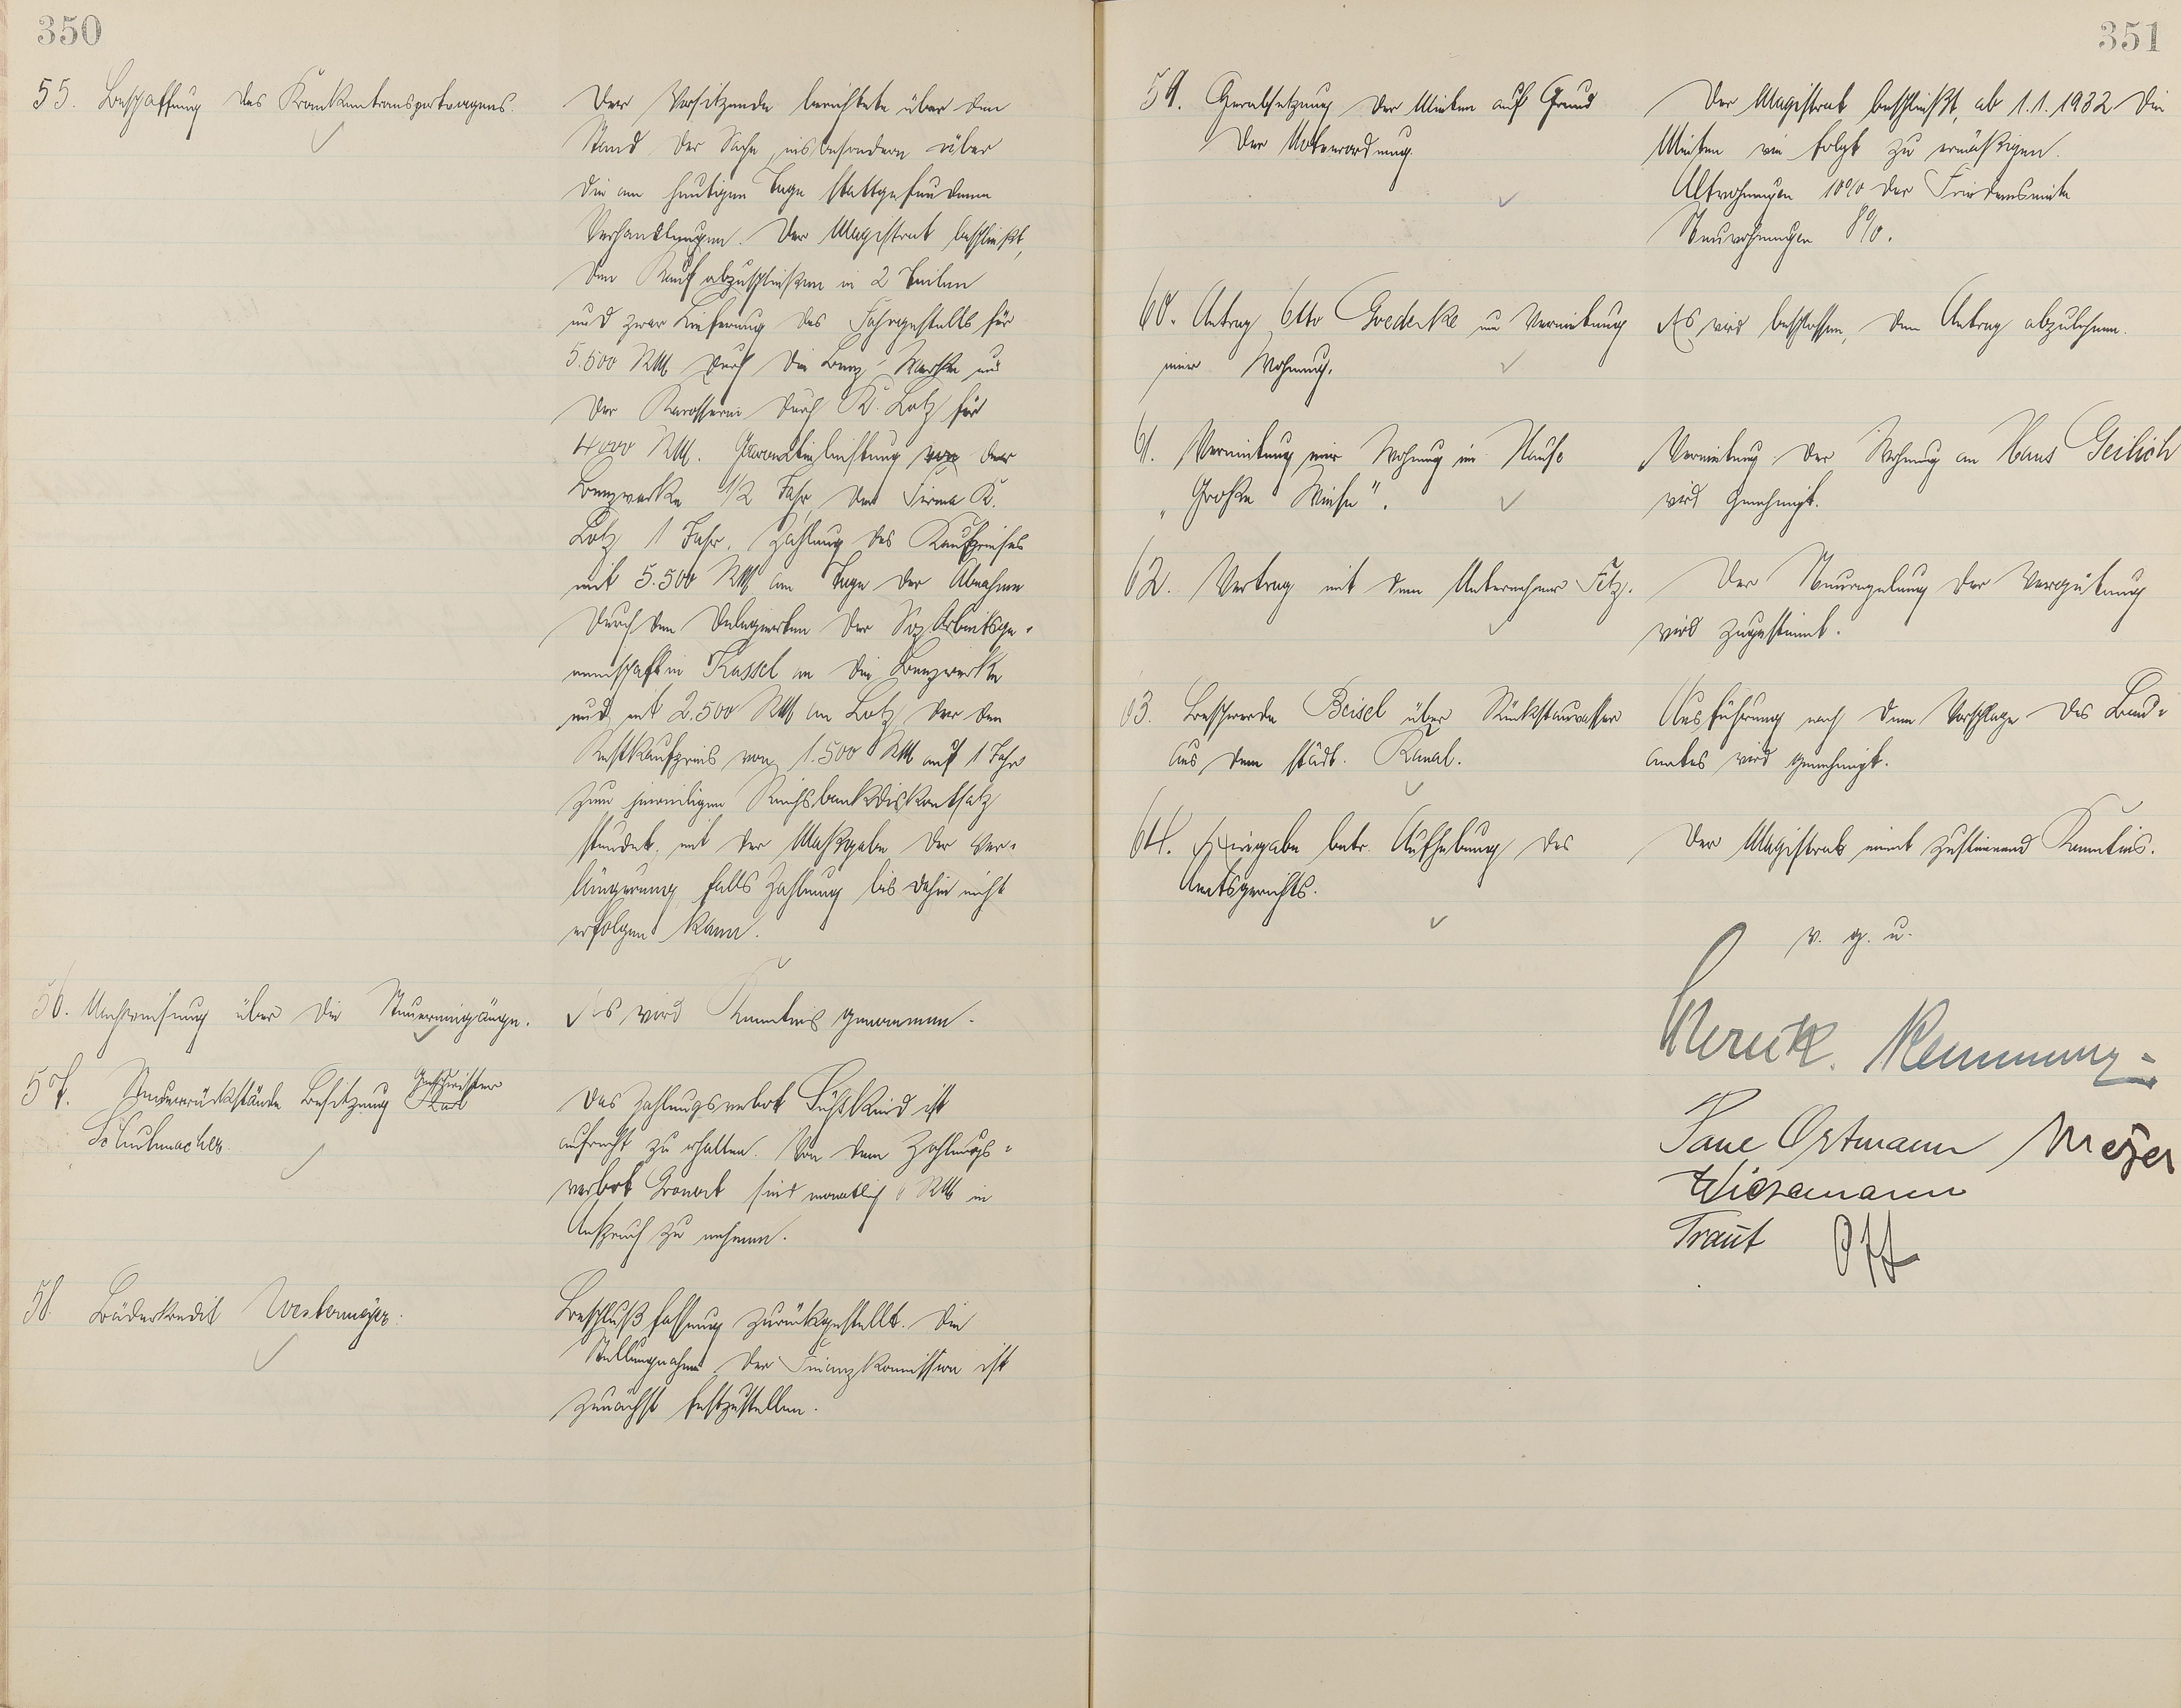 350
55. Beschaffung des Krankentransportwagens.
Der Vorsitzende berichtete über den
Stand der Sache, insbesondern über
die am heutigen Tage stattgefundenen
Verhandlungen. Der Magistrat beschließt,
den Kauf abzuschließen in 2 Teilen
und zwar Lieferung des Fahrgestells für
5.500 RM durch die Benz-Werke und
der Karosserie durch K. Lotz für
4000 RM. Garantieleistung von der
Benzwerke 1/2 Jahr, der Firma K.
Lotz 1 Jahr. Zahlung des Kaufpreises
mit 5.500 RM am Tage der Abnahme
durch den Delegierten der Soz. Arbeitsge-
meinschaft in Kassel an die Benzwerke
und mit 2.500 RM an Lotz, der den
Restkaufpreis von 1.500 RM auf 1 Jahr
zum jeweiligen Reichsbankdiskontsatz
stundet, mit der Maßgabe der Ver-
längerung, falls Zahlung bis dahin nicht
erfolgen kann.
56. Nachweisung über die Steuereingänge.
Es wird Kenntnis genommen.
57. Steuerrückstände Besitzung Geschwister Karl
Schuhmacher.
Das Zahlungsverbot Süßkind ist
aufrecht zu erhalten. Von dem Zahlungs-
verbot sind monatlich 6 RM in
Anspruch zu nehmen.
58. Bäderkredit Westermeyer.
Beschlußfassung zurückgestellt. Die
Stellungnahme der Finanzkommission ist
zunächst festzustellen.
351
59. Herabsetzung der Mieten auf Grund
der Notverordnung.
Der Magistrat beschließt, ab 1.1.1932 die
Mieten wie folgt zu ermäßigen.
Altwohnungen 10% der Friedensmiete
Neuwohnungen 8%.
60. Antrag Otto Goedecke um Vermietung
einer Wohnung.
Es wird beschlossen, den Antrag abzulehnen.
61. Vermietung einer Wohnung im Hause
„Große Wiese".
Vermietung der Wohnung an Hans Geilich
wird genehmigt.
62. Vertrag mit dem Unternehmer Fitz.
Der Neuregelung der Vergütung
wird zugestimmt.
63. Beschwerde Beisel über Rückstauwasser
aus dem städt. Kanal.
Ausführung nach dem Vorschlage des Bau-
amtes wird genehmigt.
64. Eingabe betr. Aufhebung des
Amtsgerichts.
Der Magistrat nimmt zustimmend Kenntnis.
v. g. u.
Ortmann Meyer
Wiesemann
Traut Off